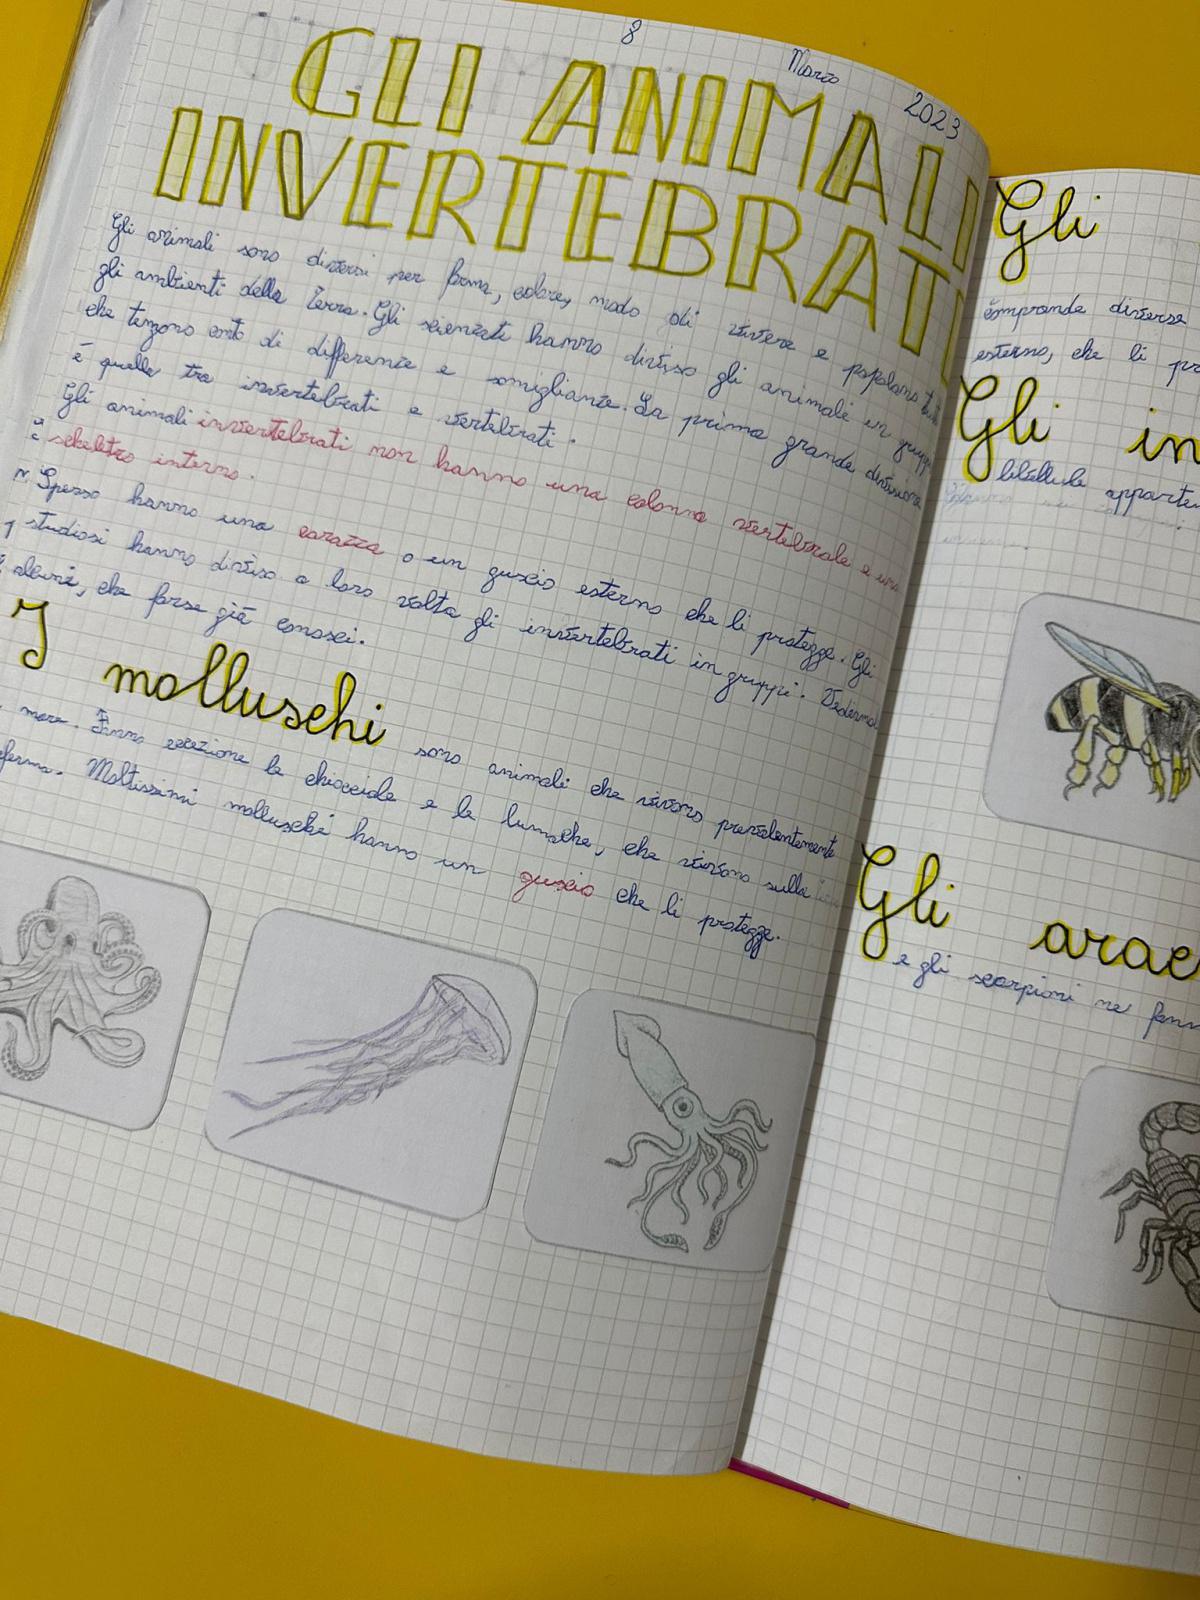 8 Marzo 2023
GLI ANIMALI
INVERTEBRATI
Gli animali sono diversi per forma, colore, modo di vivere e popolano tutti
gli ambienti della Terra. Gli scienziati hanno diviso gli animali in gruppi
che tengono conto di differenze e somiglianze. La prima grande divisione
è quella tra invertebrati e vertebrati.
Gli animali invertebrati non hanno una colonna vertebrale e uno
scheletro interno.
Spesso hanno una corazza o un guscio esterno che li protegge. Gli
studiosi hanno diviso a loro volta gli invertebrati in gruppi. Vediamo
alcuni, che forse già conosci.
I molluschi sono animali che vivono prevalentemente
mare. Fanno eccezione le chiocciole e le lumache, che vivono sulla
Moltissimi molluschi hanno un guscio che li protegge.
Gli
comprende diverse
esterno, che li
Gli in
libellule
Gli arac
e gli scorpioni ne fanno